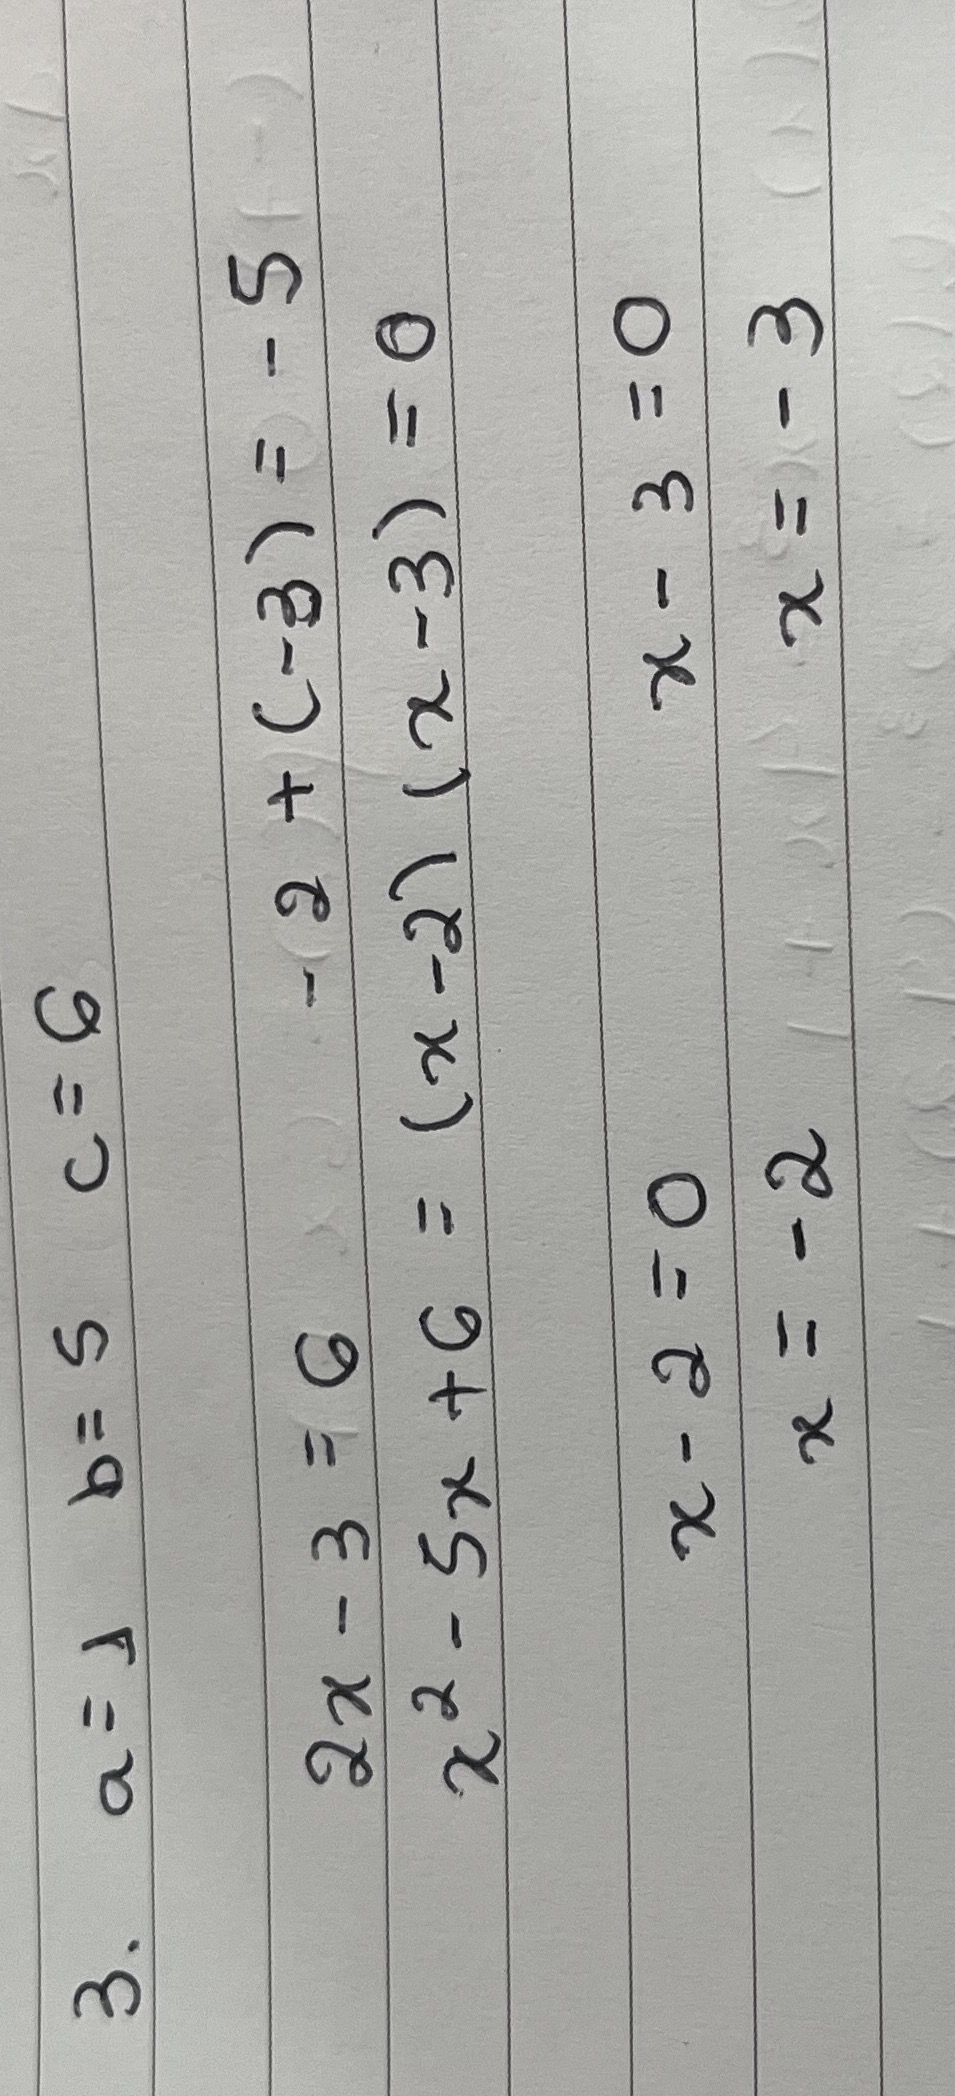 3. a = 1 b = 5 c = 6
2x - 3 = 6 - 2 + (-3) = - 5
x² - 5x + 6 = (x - 2) (x - 3) = 0
x - 2 = 0 x - 3 = 0
x = - 2 x = - 3